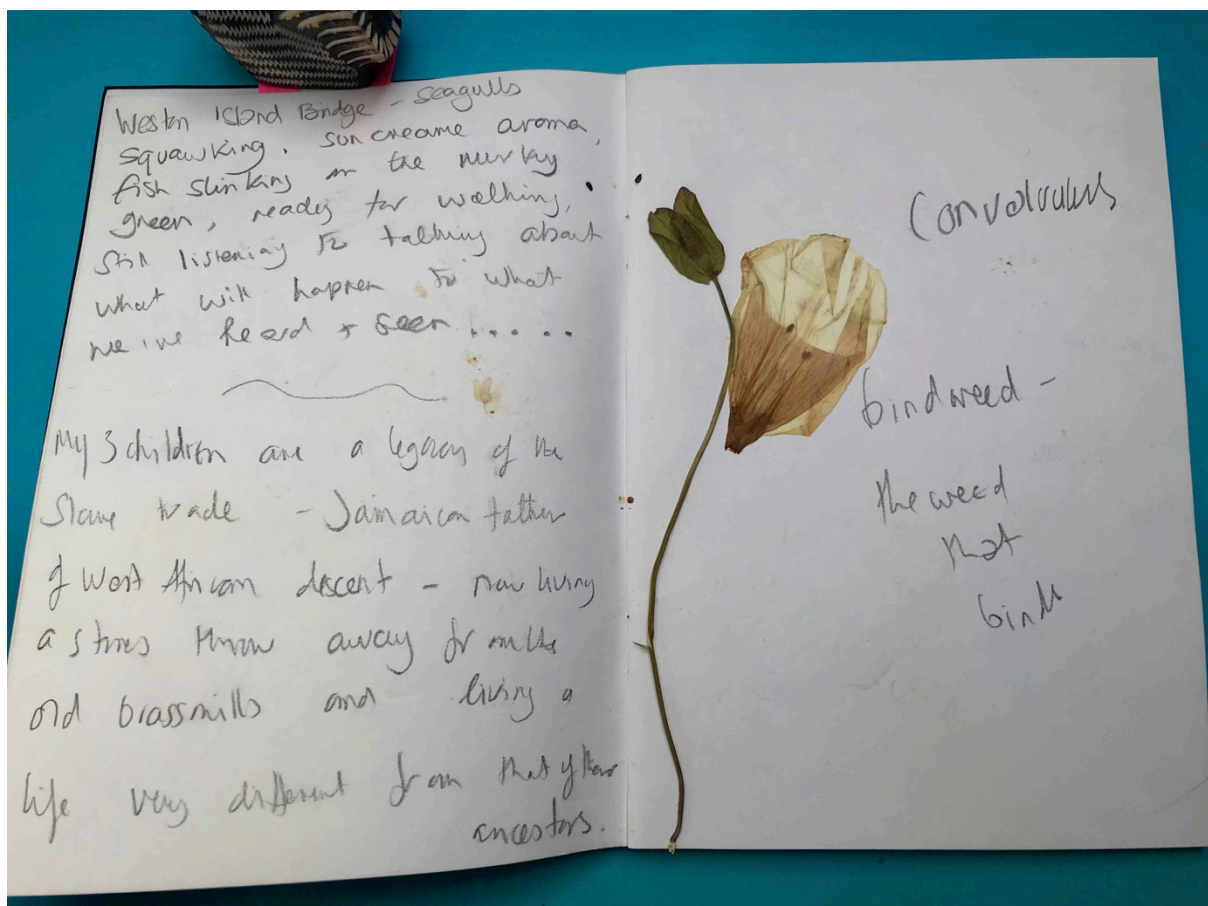 Weston Island Bridge - seagulls
squawking, suncreame aroma,
fish slinking in the murky
green, ready for walking,
still listening to talking about
what will happen to what
we've heard + seen.....
My 3 children are a legacy of the
Slave trade - Jamaican father
of West African descent - now living
a stones throw away from the
old brassmills and living a
life very different from that of their
ancestors.
Convolvulus
bindweed -
the weed
that
binds